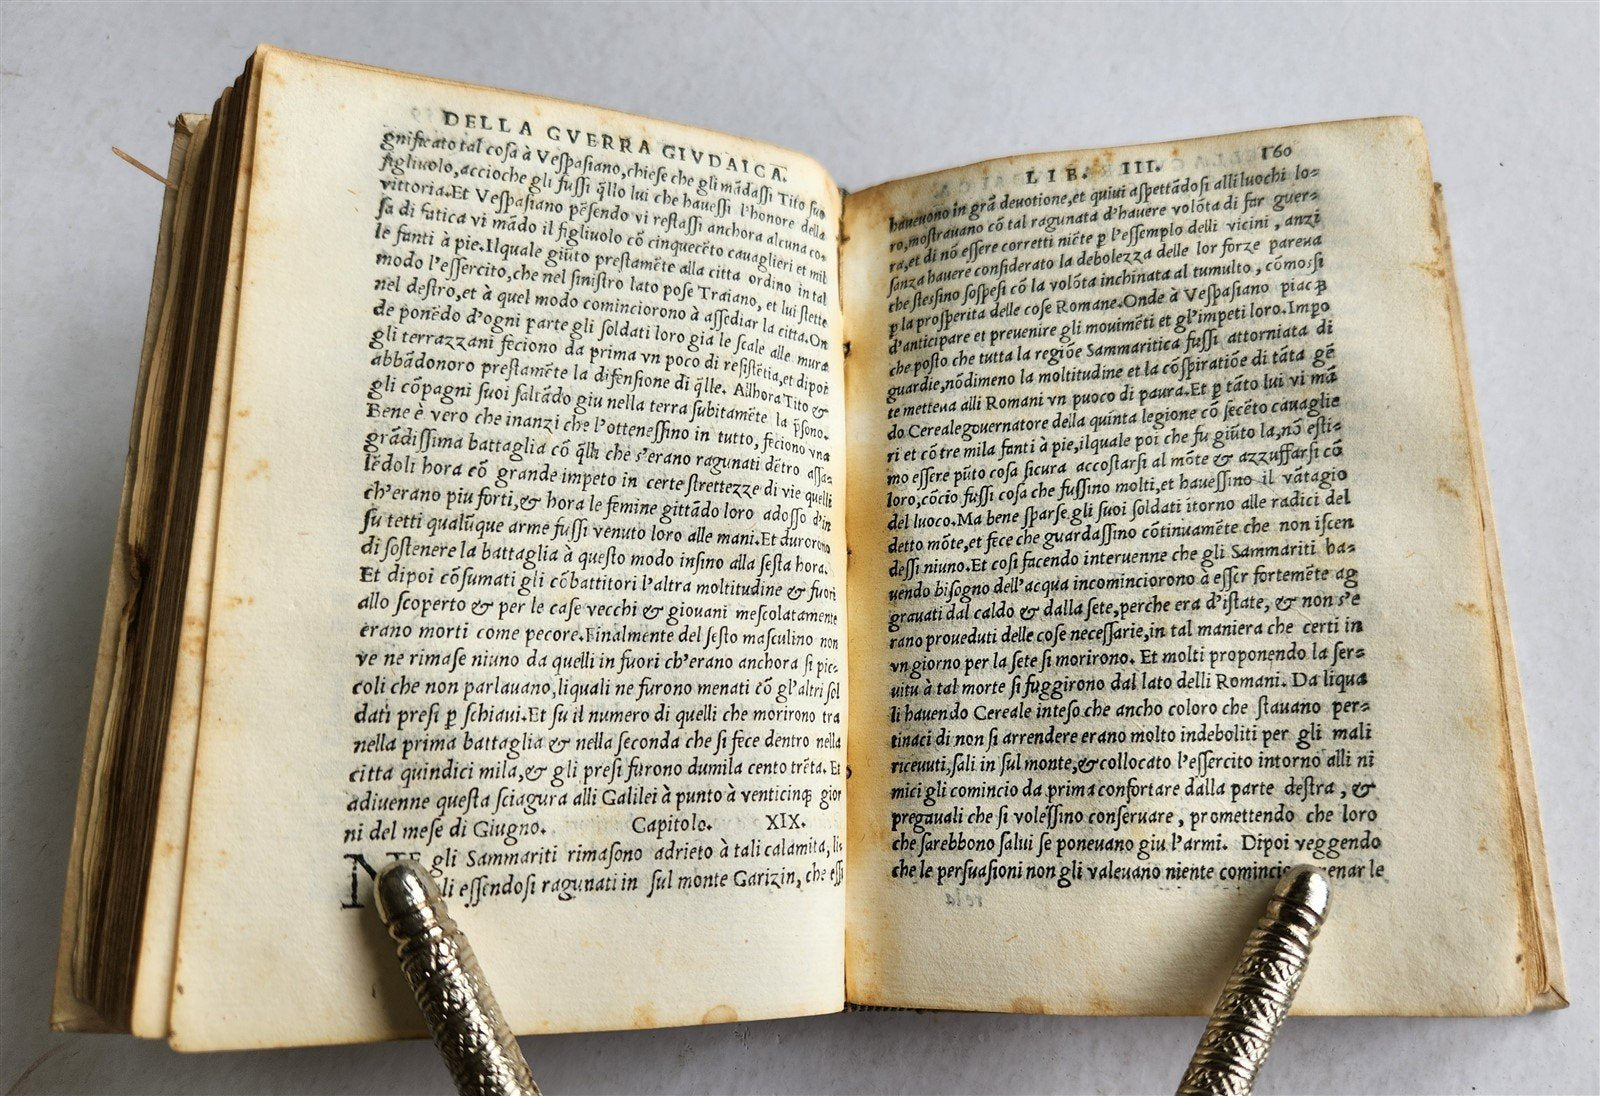 DELLA GVERRA GIVDAICA.
gnificato tal cosa à Vespasiano, chiese che gli mādassi Tito suo
figliuolo, accioche gli fussi q̄llo lui che hauessi l'honore della
vittoria. Et Vespasiano pēsendo vi restassi anchora alcuna co-
sa di fatica vi mādo il figliuolo cō cinquecēto cauaglieri et mil
le fanti à pie. Ilquale giūto prestamēte alla citta ordino in tal
modo l'essercito, che nel sinistro lato pose Traiano, et lui stette
nel destro, et à quel modo cominciorono à assediar la citta. On
de ponēdo d'ogni parte gli soldati loro gia le scale alle mura
gli terrazzani feciono da prima vn poco di resistētia, et dipoi
abbādonoro prestamēte la difensione di q̄lle. Allhora Tito &
gli cōpagni suoi saltādo giu nella terra subitamēte la p̄sono.
Bene è vero che inanzi che l'ottenessino in tutto, feciono vna
grādissima battaglia cō q̄lli che s'erano ragunati dētro assa-
lēdoli hora cō grande impeto in certe strettezze di vie quelli
ch'erano piu forti, & hora le femine gittādo loro adosso d'in
su tetti qualūque arme fussi venuto loro alle mani. Et durorono
di sostenere la battaglia à questo modo insino alla sesta hora.
Et dipoi cōsumati gli cōbattitori l'altra moltitudine & fuori
allo scoperto & per le case vecchi & giouani mescolatamente
erano morti come pecore. Finalmente del sesto masculino non
ve ne rimase niuno da quelli in fuori ch'erano anchora si pic-
coli che non parlauano, liquali ne furono menati cō gl'altri sol
dati presi p̱ schiaui. Et fu il numero di quelli che morirono tra
nella prima battaglia & nella seconda che si fece dentro nella
citta quindici mila, & gli presi furono dumila cento trēta. Et
adiuenne questa sciagura alli Galilei à punto à venticinq; gior
ni del mese di Giugno. Capitolo. XIX.
gli Sammariti rimasono adrieto à tali calamita, li-
li essendosi ragunati in sul monte Garizin, che essi
LIB. III. 160
haueuono in grā deuotione, et quiui aspettādosi alli luochi lo-
ro, mostrauano cō tal ragunata d'hauere volōta di far guer-
ra, et di nō essere corretti niēte p̱ l'essemplo delli vicini, anzi
sanza hauere considerato la debolezza delle lor forze pareua
che stessino sospesi cō la volōta inchinata al tumulto, cōmossi
p̱ la prosperita delle cose Romane. Onde à Vespasiano piacq;
d'anticipare et preuenire gli mouimēti et gl'impeti loro. Impo
che posto che tutta la regiōe Sammaritica fussi attorniata di
guardie, nōdimeno la moltitudine et la cōspiratiōe di tāta gē
te metteua alli Romani vn puoco di paura. Et p̱ tāto lui vi mā
do Cereale gouernatore della quinta legione cō secēto cauaglie
ri et cō tre mila fanti à pie, ilquale poi che fu giūto la, nō esti-
mo essere pūto cosa sicura accostarsi al mōte & azzuffarsi cō
loro, cōcio fussi cosa che fussino molti, et hauessino il vātagio
del luoco. Ma bene sparse gli suoi soldati itorno alle radici del
detto mōte, et fece che guardassino cōtinuamēte che non iscen
dessi niuno. Et cosi facendo interuenne che gli Sammariti ha-
uendo bisogno dell'acqua incominciorono à esser fortemēte ag
grauati dal caldo & dalla sete, perche era d'istate, & non s'e
rano proueduti delle cose necessarie, in tal maniera che certi in
vn giorno per la sete si morirono. Et molti proponendo la ser-
uitu à tal morte si fuggirono dal lato delli Romani. Da liqua
li hauendo Cereale inteso che ancho coloro che stauano per-
tinaci di non si arrendere erano molto indeboliti per gli mali
riceuuti, sali in sul monte, & collocato l'essercito intorno alli ni
mici gli comincio da prima confortare dalla parte destra, &
pregauali che si volessino conseruare, promettendo che loro
che sarebbono salui se poneuano giu l'armi. Dipoi veggendo
che le persuasioni non gli valeuano niente menar le